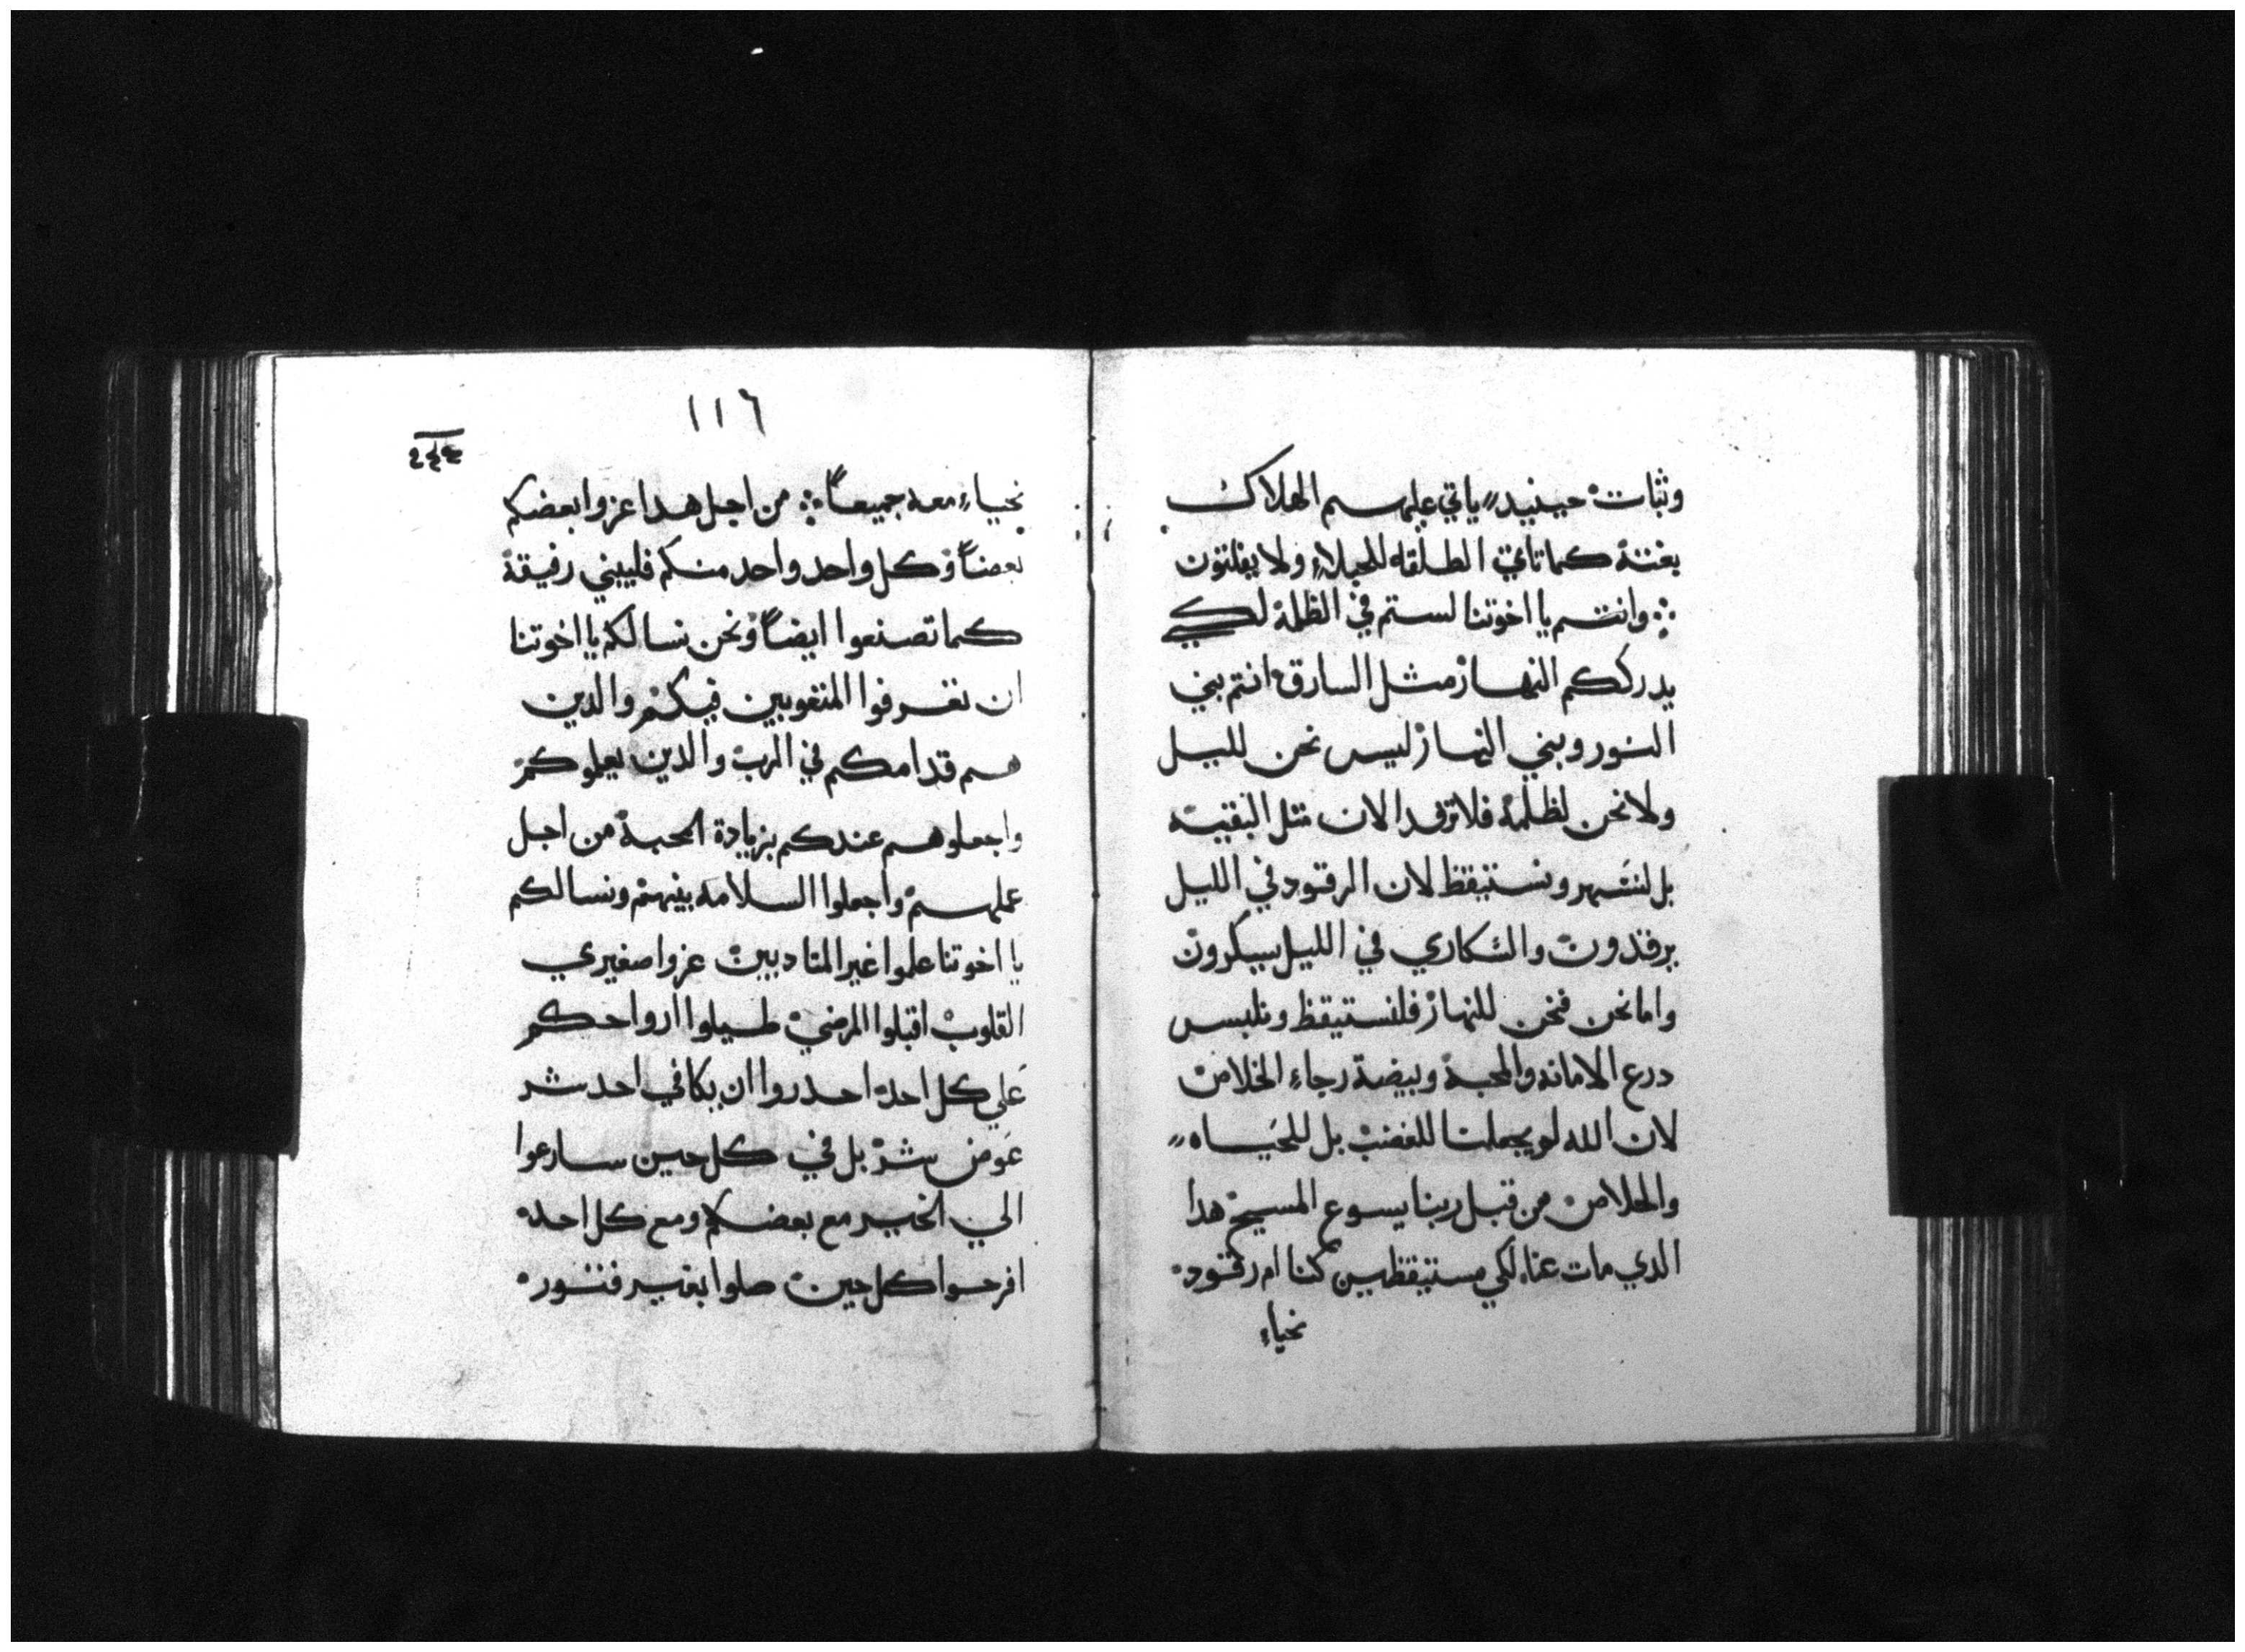 وثبات حينيد ياتي عليهم الهلاك
بغتة كما تاتي الطلقه للحبلاء ولا يفلتون
وانتم يا اخوتنا لستم في الظلمة لكي
يدرككم النهار مثل السارق انتم بني
النور وبني النهار ليس نحن لليل
ولا نحن لظلمة فلا نرقد الان مثل البقيه
بل لنسهر ونستيقظ لان الرقود في الليل
يرقدون والسكاري في الليل يسكرون
واما نحن فنحن للنهار فلنستيقظ ونلبس
درع الامانه والمحبة وبيضة رجاء الخلاص
لان الله لم يجعلنا للغضب بل للحياه
والخلاص من قبل ربنا يسوع المسيح هدا
الدي مات عنا لكي مستيقظين كنا ام رقود
نحياء
١١٦
نحياء معه جميعاً من اجل هدا عزوا بعضكم
بعضاً وكل واحد واحد منكم فليبني رفيقة
كما تصنعوا ايضاً ونحن نسالكم يا اخوتنا
ان تعرفوا المتعوبين فيكم والدين
هم قدامكم في الرب والدين يعلموكم
واجعلوهم عندكم بزيادة المحبة من اجل
عملهم واجعلوا السلامه بينهم ونسالكم
يا اخوتنا علموا غير المتادبين عزوا صغيري
القلوب اقبلوا المرضي طيلوا ارواحكم
علي كل احد احدروا ان يكافي احد شر
عوض شر بل في كل حين سارعوا
الي الخير مع بعضكم ومع كل احد
افرحوا كل حين صلوا بغير فتور